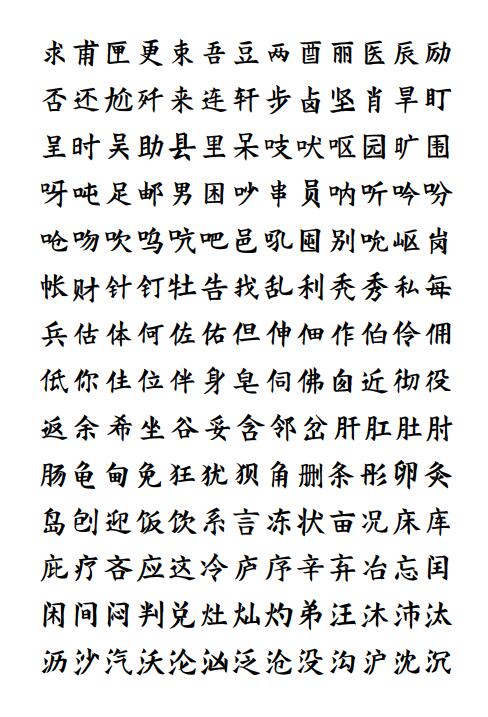 求甫匣更束吾豆两酉丽医辰励
否还尬歼来连轩步卤坚肖旱盯
呈时吴助县里呆吱吠呕园旷围
呀吨足邮男困吵串员呐听吟吩
呛吻吹呜吭吧邑吼囤别吮岖岗
帐财针钉牡告我乱利秃秀私每
兵估体何佐佑但伸佃作伯伶佣
低你住位伴身皂伺佛囱近彻役
返余希坐谷妥含邻岔肝肛肚肘
肠龟甸免狂犹狈角删条彤卵灸
岛刨迎饭饮系言冻状亩况床库
庇疗吝应这冷庐序辛弃冶忘闰
闲间闷判兑灶灿灼弟汪沐沛汰
沥沙汽沃沦汹泛沧没沟沪沈沉